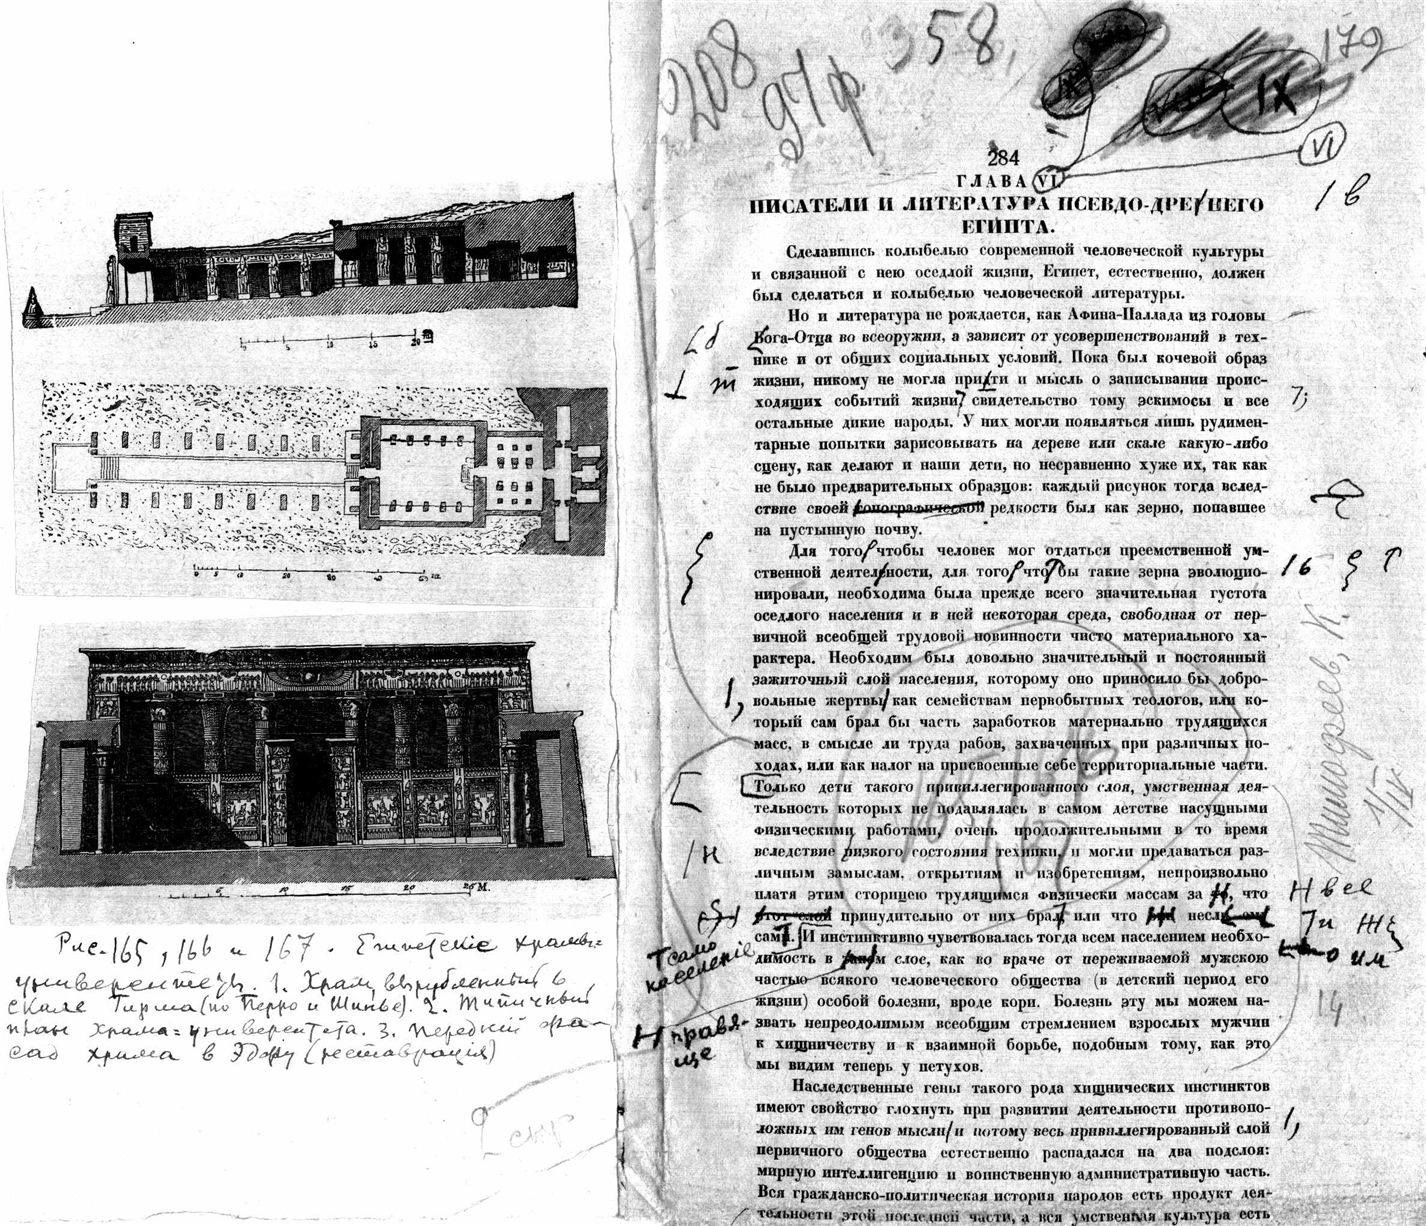 0 5 10 15 20
0 5 10 20 30 40 50
5 10 15 20 25 М.
Рис. 165, 166 и 167. Египетские храмы=
университеты. 1. Храм вырубленный в
скале Гирша (по Перро и Шипье). 2. Типичный
план храма=университета. 3. Передний фа-
сад храма в Эдфу (реставрация)
208
97ф.
358,
179
IX
VI
284
ГЛАВА VI.
ПИСАТЕЛИ И ЛИТЕРАТУРА ПСЕВДО-ДРЕ/НЕГО
ЕГИПТА.
Сделавшись колыбелью современной человеческой культуры
и связанной с нею оседлой жизни, Египет, естественно, должен
был сделаться и колыбелью человеческой литературы.
Но и литература не рождается, как Афина-Паллада из головы
Бога-Отца во всеоружии, а зависит от усовершенствований в тех-
нике и от общих социальных условий. Пока был кочевой образ
жизни, никому не могла придти и мысль о записывании проис-
ходящих событий жизни, свидетельство тому эскимосы и все
остальные дикие народы. У них могли появляться лишь рудимен-
тарные попытки зарисовывать на дереве или скале какую-либо
сцену, как делают и наши дети, но несравненно хуже их, так как
не было предварительных образцов: каждый рисунок тогда вслед-
ствие своей редкости был как зерно, попавшее
на пустынную почву.
Для того чтобы человек мог отдаться преемственной ум-
ственной деятельности, для того чтобы такие зерна эволюцио-
нировали, необходима была прежде всего значительная густота
оседлого населения и в ней некоторая среда, свободная от пер-
вичной всеобщей трудовой повинности чисто материального ха-
рактера. Необходим был довольно значительный и постоянный
зажиточный слой населения, которому оно приносило бы добро-
вольные жертвы как семействам первобытных теологов, или ко-
торый сам брал бы часть заработков материально трудящихся
масс, в смысле ли труда рабов, захваченных при различных по-
ходах, или как налог на присвоенные себе территориальные части.
Только дети такого привиллегированного слоя, умственная дея-
тельность которых не подавлялась в самом детстве насущными
физическими работами, очень продолжительными в то время
вследствие низкого состояния техники, и могли предаваться раз-
личным замыслам, открытиям и изобретениям, непроизвольно
платя этим сторицею трудящимся физически массам за , что
этот слой принудительно от них брал, или что несл
сами. И инстинктивно чувствовалась тогда всем населением необхо-
димость в м слое, как во враче от переживаемой мужскою
частью всякого человеческого общества (в детский период его
жизни) особой болезни, вроде кори. Болезнь эту мы можем на-
звать непреодолимым всеобщим стремлением взрослых мужчин
к хищничеству и к взаимной борьбе, подобным тому, как это
мы видим теперь у петухов.
Наследственные гены такого рода хищнических инстинктов
имеют свойство глохнуть при развитии деятельности противопо-
ложных им генов мысли и потому весь привиллегированный слой
первичного общества естественно распадался на два подслоя:
мирную интеллигенцию и воинственную административную часть.
Вся гражданско-политическая история народов есть продукт дея-
тельности этой последней части, а вся умственная культура есть
/ в
б
/ ь
/ н
само
население
правя-
ще
Н все
о им
Тимофеев, К.
14